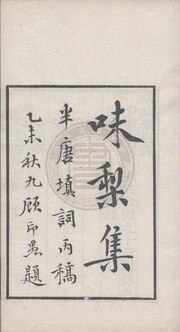 味梨集
半唐填詞丙稿
乙未秋九顧印愚題